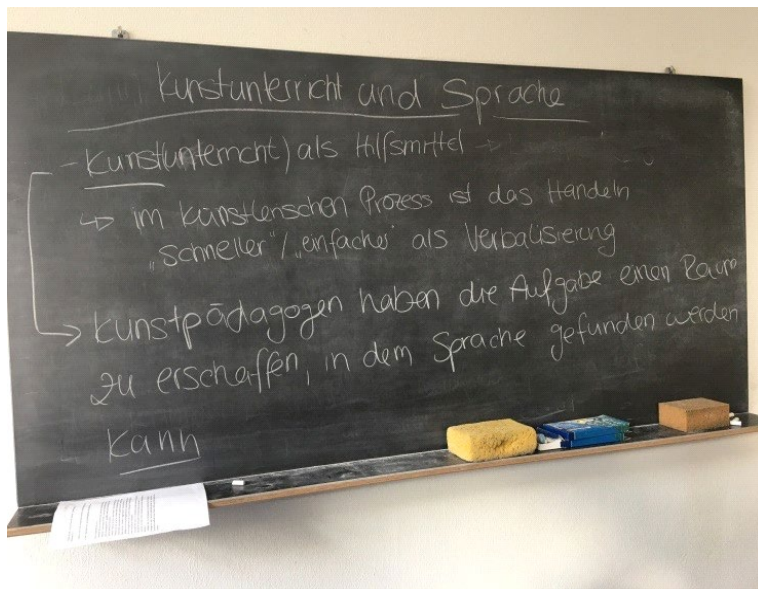 Kunstunterricht und Sprache
- Kunst(unterricht) als Hilfsmittel →
↳ im künstlerischen Prozess ist das Handeln
„schneller"/„einfacher" als Verbalisierung
→ Kunstpädagogen haben die Aufgabe einen Raum
zu erschaffen, in dem Sprache gefunden werden
kann